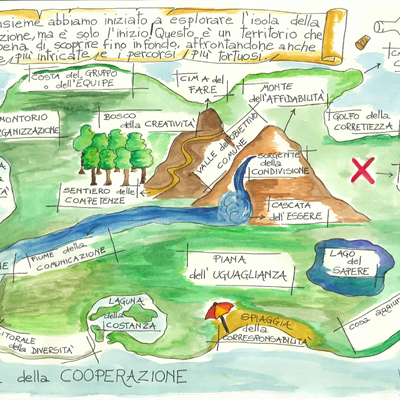 nsieme abbiamo iniziato a esplorare l'isola della
zione, ma è solo l'inizio! Questo è un territorio che
pena di scoprire fino in fondo, affrontandone anche
più intricate e i percorsi più tortuosi.
COSTA del GRUPPO
o dell'ÉQUIPE
CIMA del
FARE
MONTE
dell'AFFIDABILITÀ
MONTORIO
RGANIZZAZIONE
BOSCO
della CREATIVITÀ
VALLE dell'OBIETTIVO
COMUNE
GOLFO della
CORRETTEZZA
SORGENTE
della
CONDIVISIONE
SENTIERO delle
COMPETENZE
CASCATA
dell'ESSERE
FIUME della
COMUNICAZIONE
PIANA
dell'UGUAGLIANZA
LAGO
del
SAPERE
LAGUNA
della
COSTANZA
SPIAGGIA
della
CORRESPONSABILITÀ
cosa aggiun
ITORALE
della DIVERSITÀ
della COOPERAZIONE